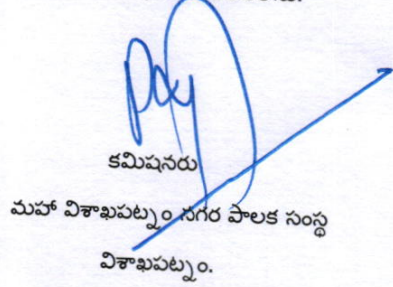 కమిషనరు
మహా విశాఖపట్నం నగర పాలక సంస్థ
విశాఖపట్నం.